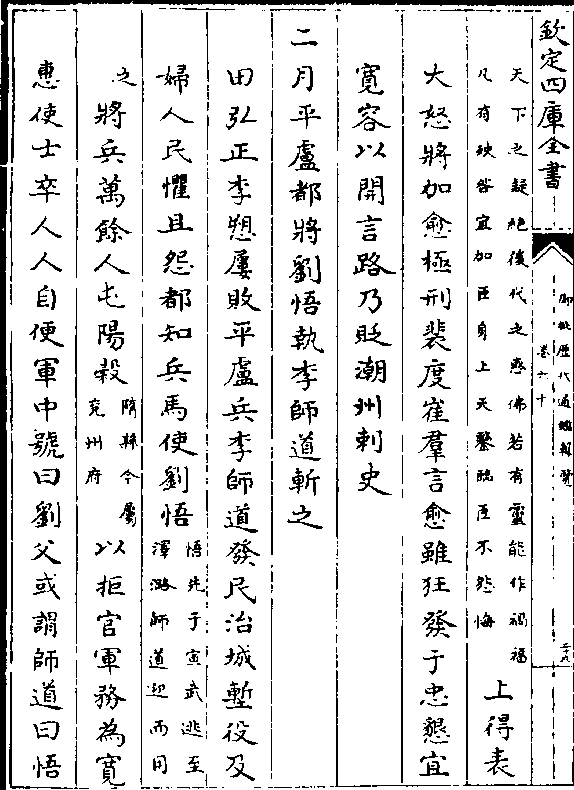 欽定四庫全書
御批歷代通鑑輯覽
卷六十
二十九
天下之疑絶後代之惑佛若有靈能作禍福
凡有殃咎宜加臣身上天鑒臨臣不怨悔
上得表
大怒將加愈極刑裴度崔羣言愈雖狂發于忠懇宜
寛容以開言路乃貶潮州刺史
二月平盧都將劉悟執李師道斬之
田弘正李愬屢敗平盧兵李師道發民治城塹役及
婦人民懼且怨都知兵馬使劉悟
悟先于宣武逃至
澤潞師道迎而用
之
將兵萬餘人屯陽穀
隋縣今屬
兖州府
以拒官軍務為寛
惠使士卒人人自便軍中號曰劉父或謂師道曰悟